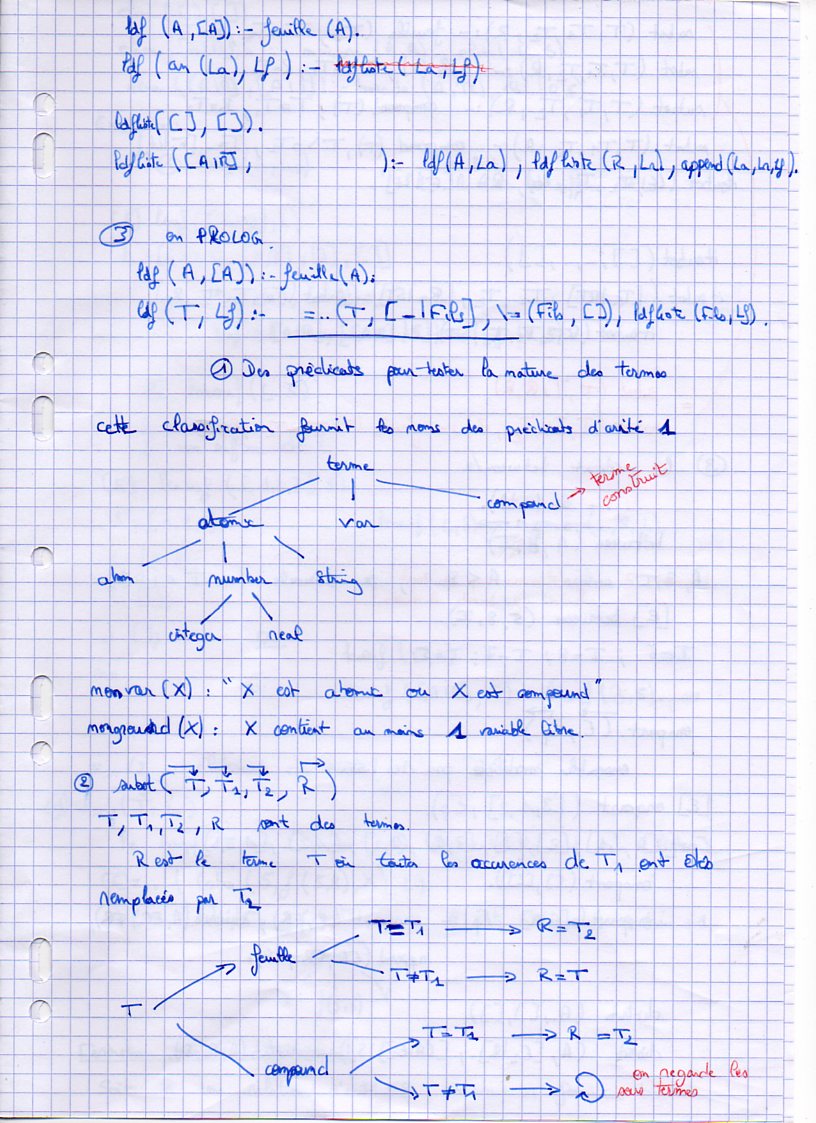 ldf (A, [A]) :- feuille (A).
ldf (an (La), Lf) :- ldfliste (La, Lf)
ldfliste([], []).
ldfliste ([A|R],            ) :- ldf(A, La), ldfliste (R, Lr), append (La, Lr, Lf).
③ en PROLOG.
ldf (A, [A]) :- feuille(A).
ldf (T, Lf) :- =.. (T, [_|Fils], \= (Fils, []), ldfliste (Fils, Lf).
① Des prédicats pour tester la nature des termes
cette classification fournit les noms des prédicats d'arité 1
terme
atomic var compound → terme construit
atom number string
integer real
nonvar (X) : "X est atomic ou X est compound"
nonground (X) : X contient au moins 1 variable libre.
② subst (T, T1, T2, R)
T, T1, T2, R sont des termes.
R est le terme T où toutes les occurences de T1 ont étés
remplacés par T2
T=T1 → R=T2
feuille
T≠T1 → R=T
T
T=T1 → R=T2
compound
T≠T1 → on regarde les sous termes